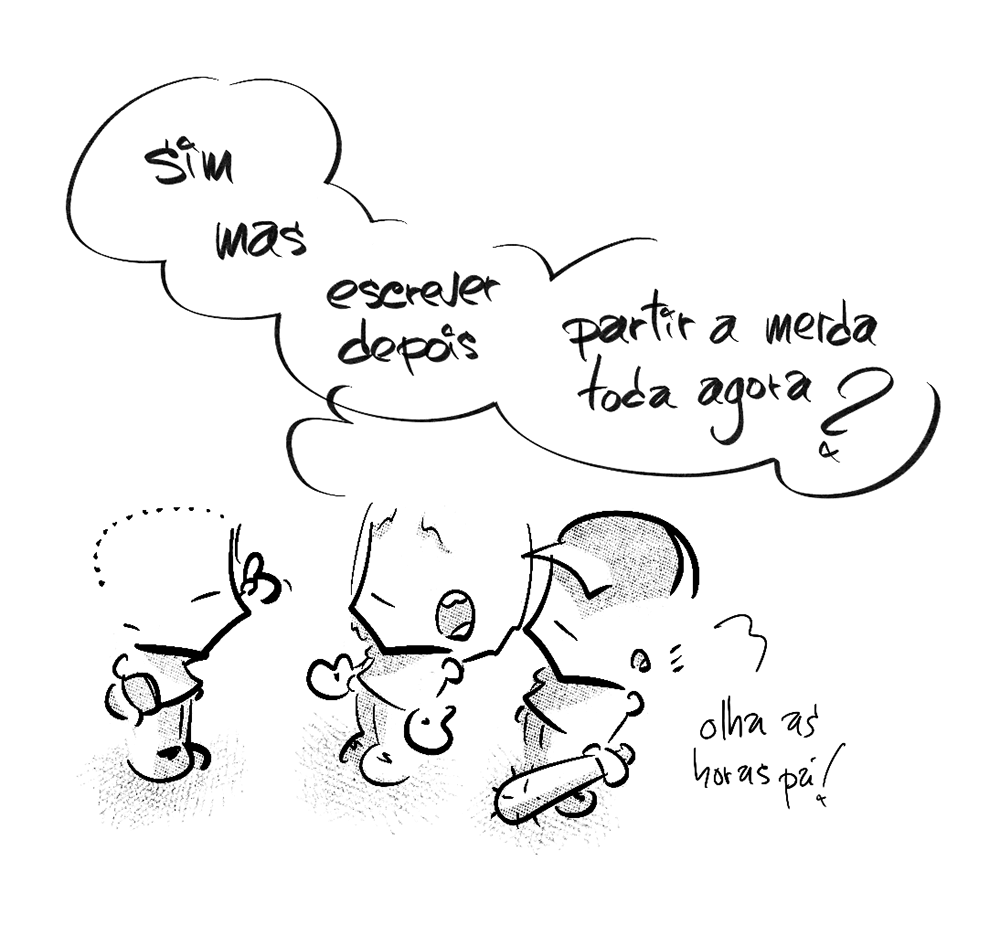 sim
mas
escrever
depois
partir a merda
toda agora?
olha as
horas pá!